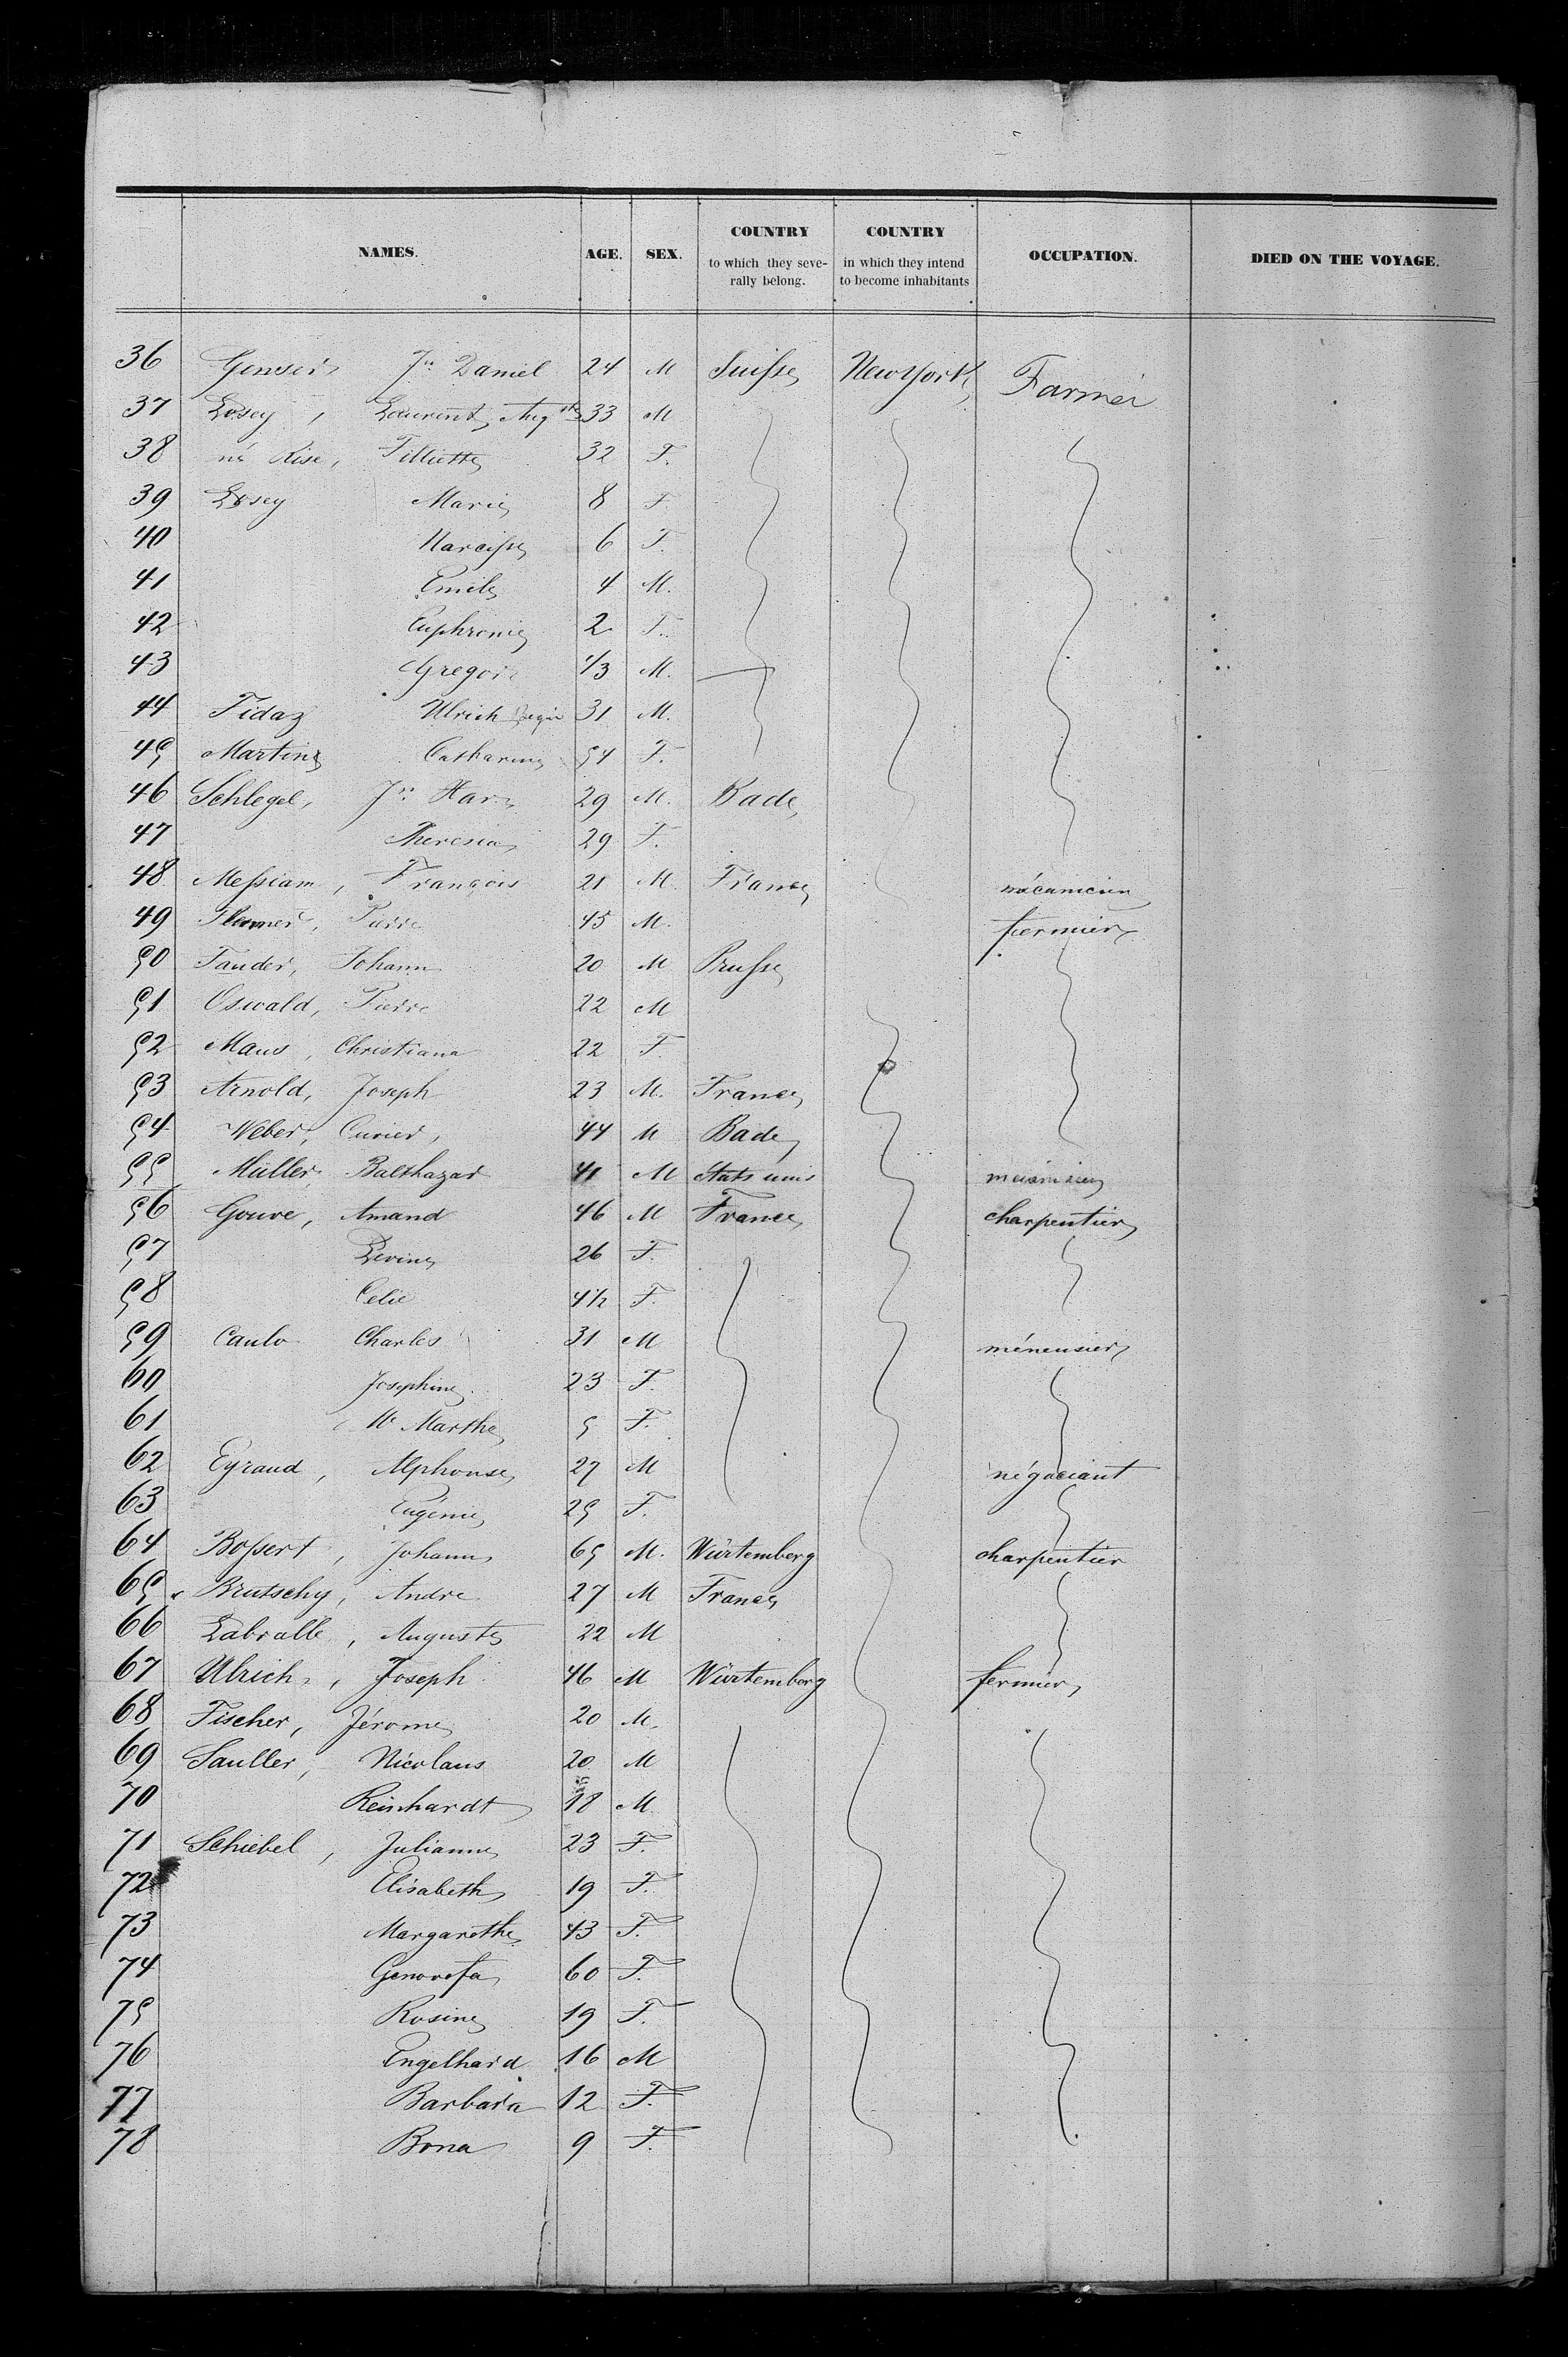 NAMES. AGE. SEX. COUNTRY to which they severally belong. COUNTRY in which they intend to become inhabitants OCCUPATION. DIED ON THE VOYAGE.
36 Genser Jn Daniel 24 M Suisse New York Farmer
37 Losey, Laurent, Augte 33 M
38 né Rise, Filliette 32 F.
39 Losey Marie 8 F
40 Narcisse 6 F.
41 Emile 4 M.
42 Euphronie 2 F.
43 Gregori 1/3 M.
44 Fidaz Ulrich 31 M.
45 Martine Catharine 54 F.
46 Schlegel, Jn 29 M. Bade
47 Theresia 29 F.
48 Messiam, François 21 M France mécanicien
49 Pierre 45 M. fermier
50 Tauder, Johann 20 M Prusse
51 Oswald, Pierre 22 M
52 Maus, Christiana 22 F.
53 Arnold, Joseph 23 M. France
54 Weber, 44 M Bade
55 Müller, Balthazar 41 M états unis
56 Gouve, Amand 46 M France charpentier
57 Levine 26 F.
58 Celie 4½ F.
59 Caulo Charles 31 M méneusier
60 Josephine 23 F.
61 Me Marthe 5 F.
62 Eyraud, Alphonse 27 M négociant
63 Eugénie 25 F.
64 Bossert, Johann 65 M. Würtemberg charpentier
65 Brutschy, Andre 27 M France
66 Labralle, Auguste 22 M
67 Ulrich, Joseph 46 M Würtemberg fermier
68 Fischer, Jérome 20 M.
69 Sauller, Nicolaus 20 M
70 Reinhardt 18 M
71 Schiebel, Julianne 23 F.
72 Elisabeth 19 F.
73 Margarethe 43 F.
74 Genovefa 60 F.
75 Rosine 19 F.
76 Engelhard 16 M
77 Barbara 12 F.
78 Bona 9 F.